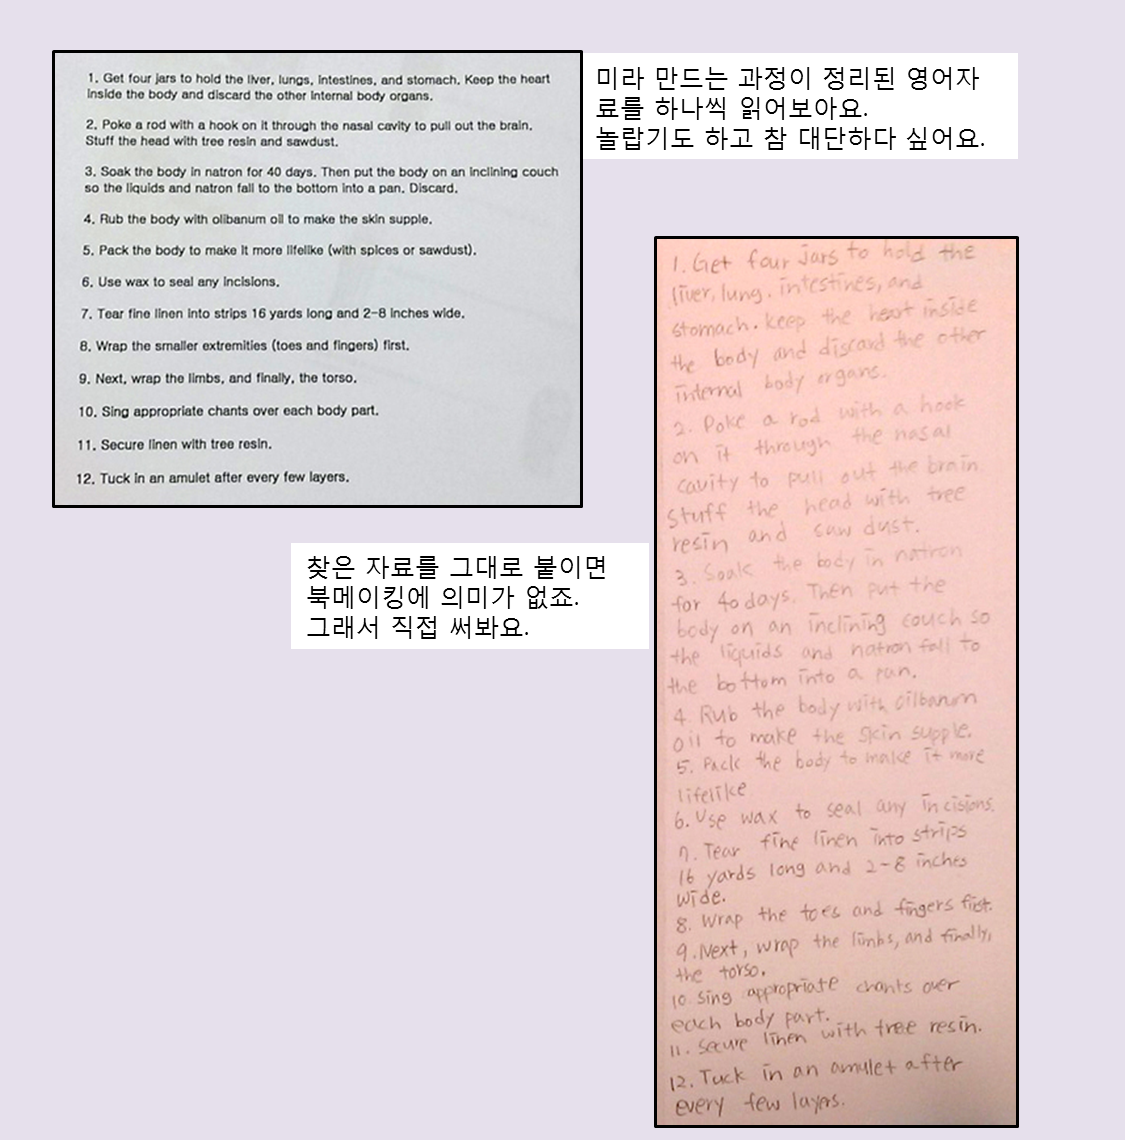 1. Get four jars to hold the liver, lungs, intestines, and stomach. Keep the heart
inside the body and discard the other internal body organs.
2. Poke a rod with a hook on it through the nasal cavity to pull out the brain.
Stuff the head with tree resin and sawdust.
3. Soak the body in natron for 40 days. Then put the body on an inclining couch
so the liquids and natron fall to the bottom into a pan. Discard.
4. Rub the body with olibanum oil to make the skin supple.
5. Pack the body to make it more lifelike (with spices or sawdust).
6. Use wax to seal any incisions.
7. Tear fine linen into strips 16 yards long and 2-8 inches wide.
8. Wrap the smaller extremities (toes and fingers) first.
9. Next, wrap the limbs, and finally, the torso.
10. Sing appropriate chants over each body part.
11. Secure linen with tree resin.
12. Tuck in an amulet after every few layers.
미라 만드는 과정이 정리된 영어자
료를 하나씩 읽어보아요.
놀랍기도 하고 참 대단하다 싶어요.
찾은 자료를 그대로 붙이면
북메이킹에 의미가 없죠.
그래서 직접 써봐요.
1. Get four jars to hold the
liver, lung. intestines, and
stomach. keep the heart inside
the body and discard the other
internal body organs.
2. Poke a rod with a hook
on it through the nasal
cavity to pull out the brain
stuff the head with tree
resin and saw dust.
3. Soak the body in natron
for 40 days. Then put the
body on an inclining couch so
the liquids and natron fall to
the bottom into a pan.
4. Rub the body with oilbanum
oil to make the skin supple.
5. Pack the body to make it more
lifelike
6. Use wax to seal any incisions.
7. Tear fine linen into strips
16 yards long and 2-8 inches
wide.
8. Wrap the toes and fingers first.
9. Next, wrap the limbs, and finally,
the torso.
10 Sing appropriate chants over
each body part.
11. Secure linen with tree resin.
12. Tuck in an amulet after
every few layers.